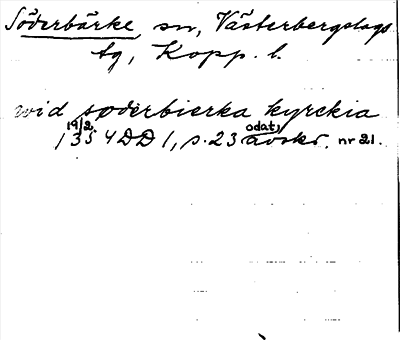 Söderbärke, sn, Västerbergslags
tg, Kopp. l.
wid søderbierka kyrckia
19/2 odat.
1354 DD 1, s. 23 avskr. nr 21.